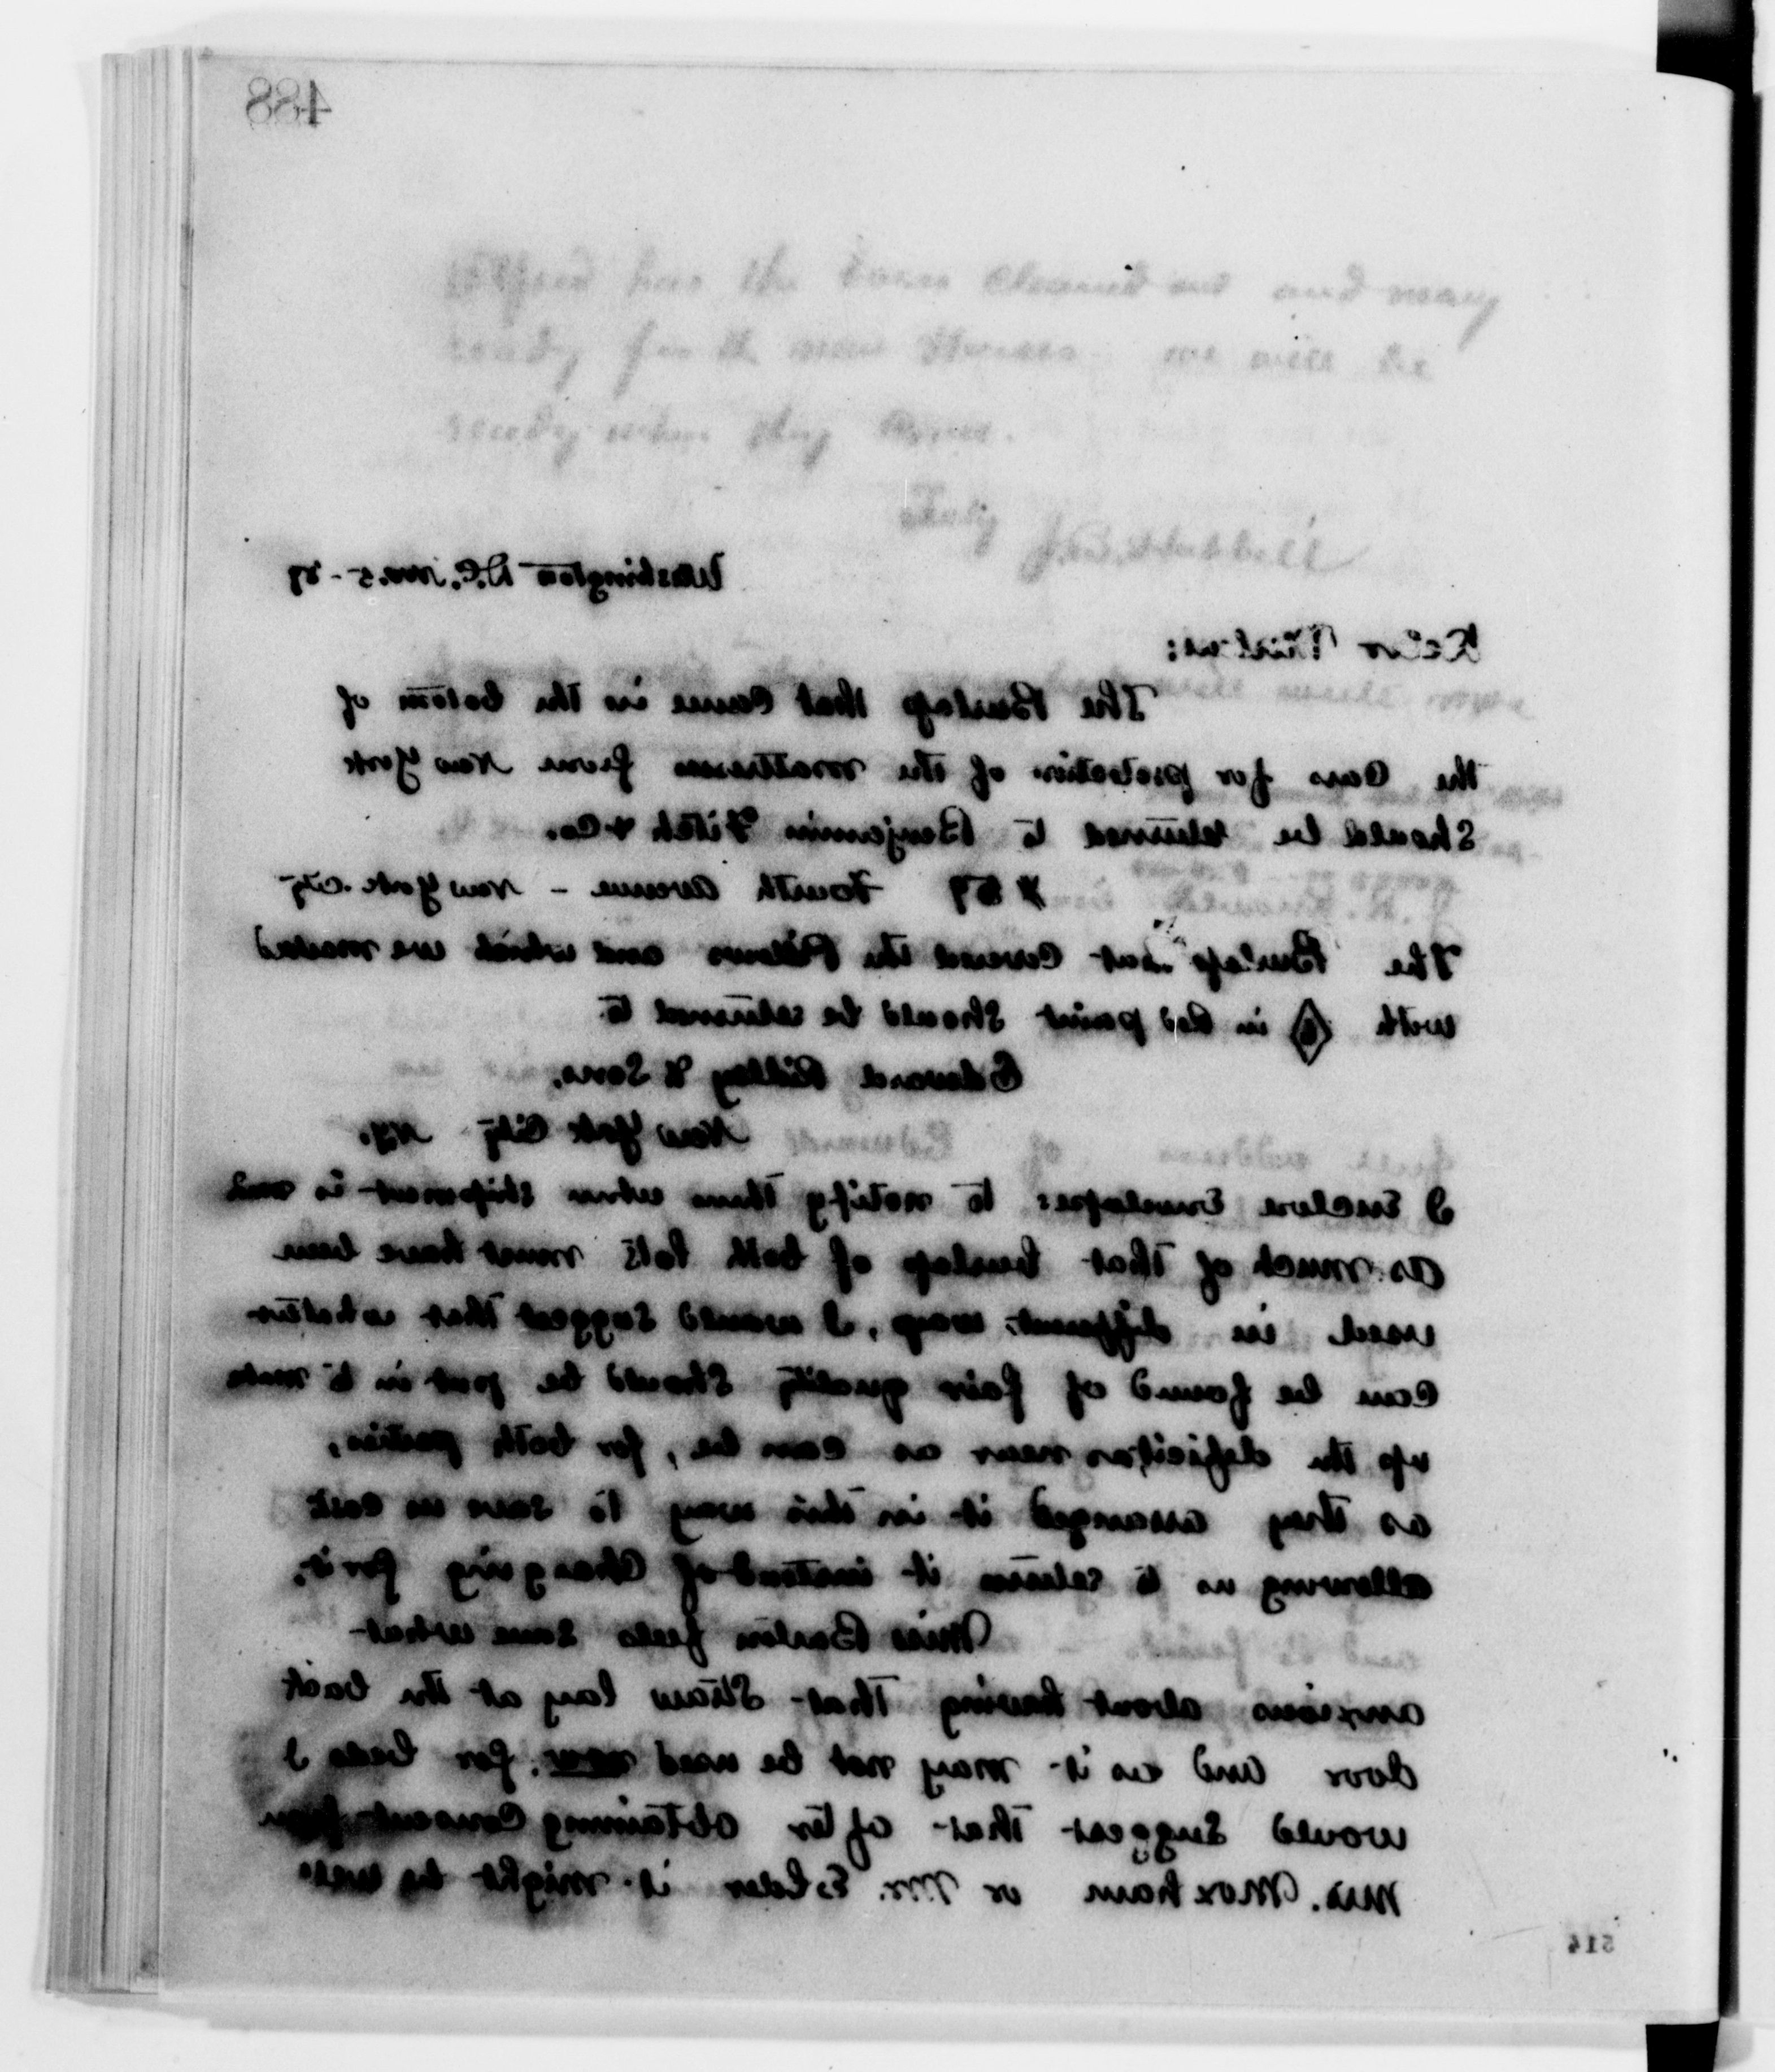 488
has the barn cleaned out and
ready for the new Horses we will be
ready when they come.
Truly
J.B. Hubbell
Washington D.C. Nov. 5 - 89
The Burlap that came in the bottom of
the Cars for protection of the mattresses from New York
Should be returned to Benjamin Fitch & Co.
# 59 Fourth Avenue - New York City
The Burlap that covered the Pillows and which we marked
with in Red paint should be returned to
Edward Ridley & Sons,
New York City N.Y.
I Enclose Envelopes: to notify them when shipment is made
As much of that burlap of both lots must have been
used in different ways, I would suggest that whatever
can be found of fair quality should be put in to make
up the deficit, as near as can be, for both parties,
as they arranged it in this way to save us cost
allowing us to return it instead of charging for it.
Miss Barton feels some what
anxious about having that Straw lay at the back
door and as it may not be used now, for beds I
would suggest that after obtaining consent from
Mrs. Moxham or Mr. it might be well
514